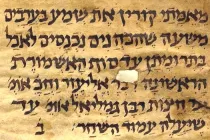 מאמתי קורין את שמע בערבים
משעה שהכהנים נכנסים לאכל
בתרומתן עד סוף האשמורת
הראשונה דברי אליעזר וחכ אומ
עד חצות רבן גמליאל אומ עד
שיעלה עמוד השחר ב